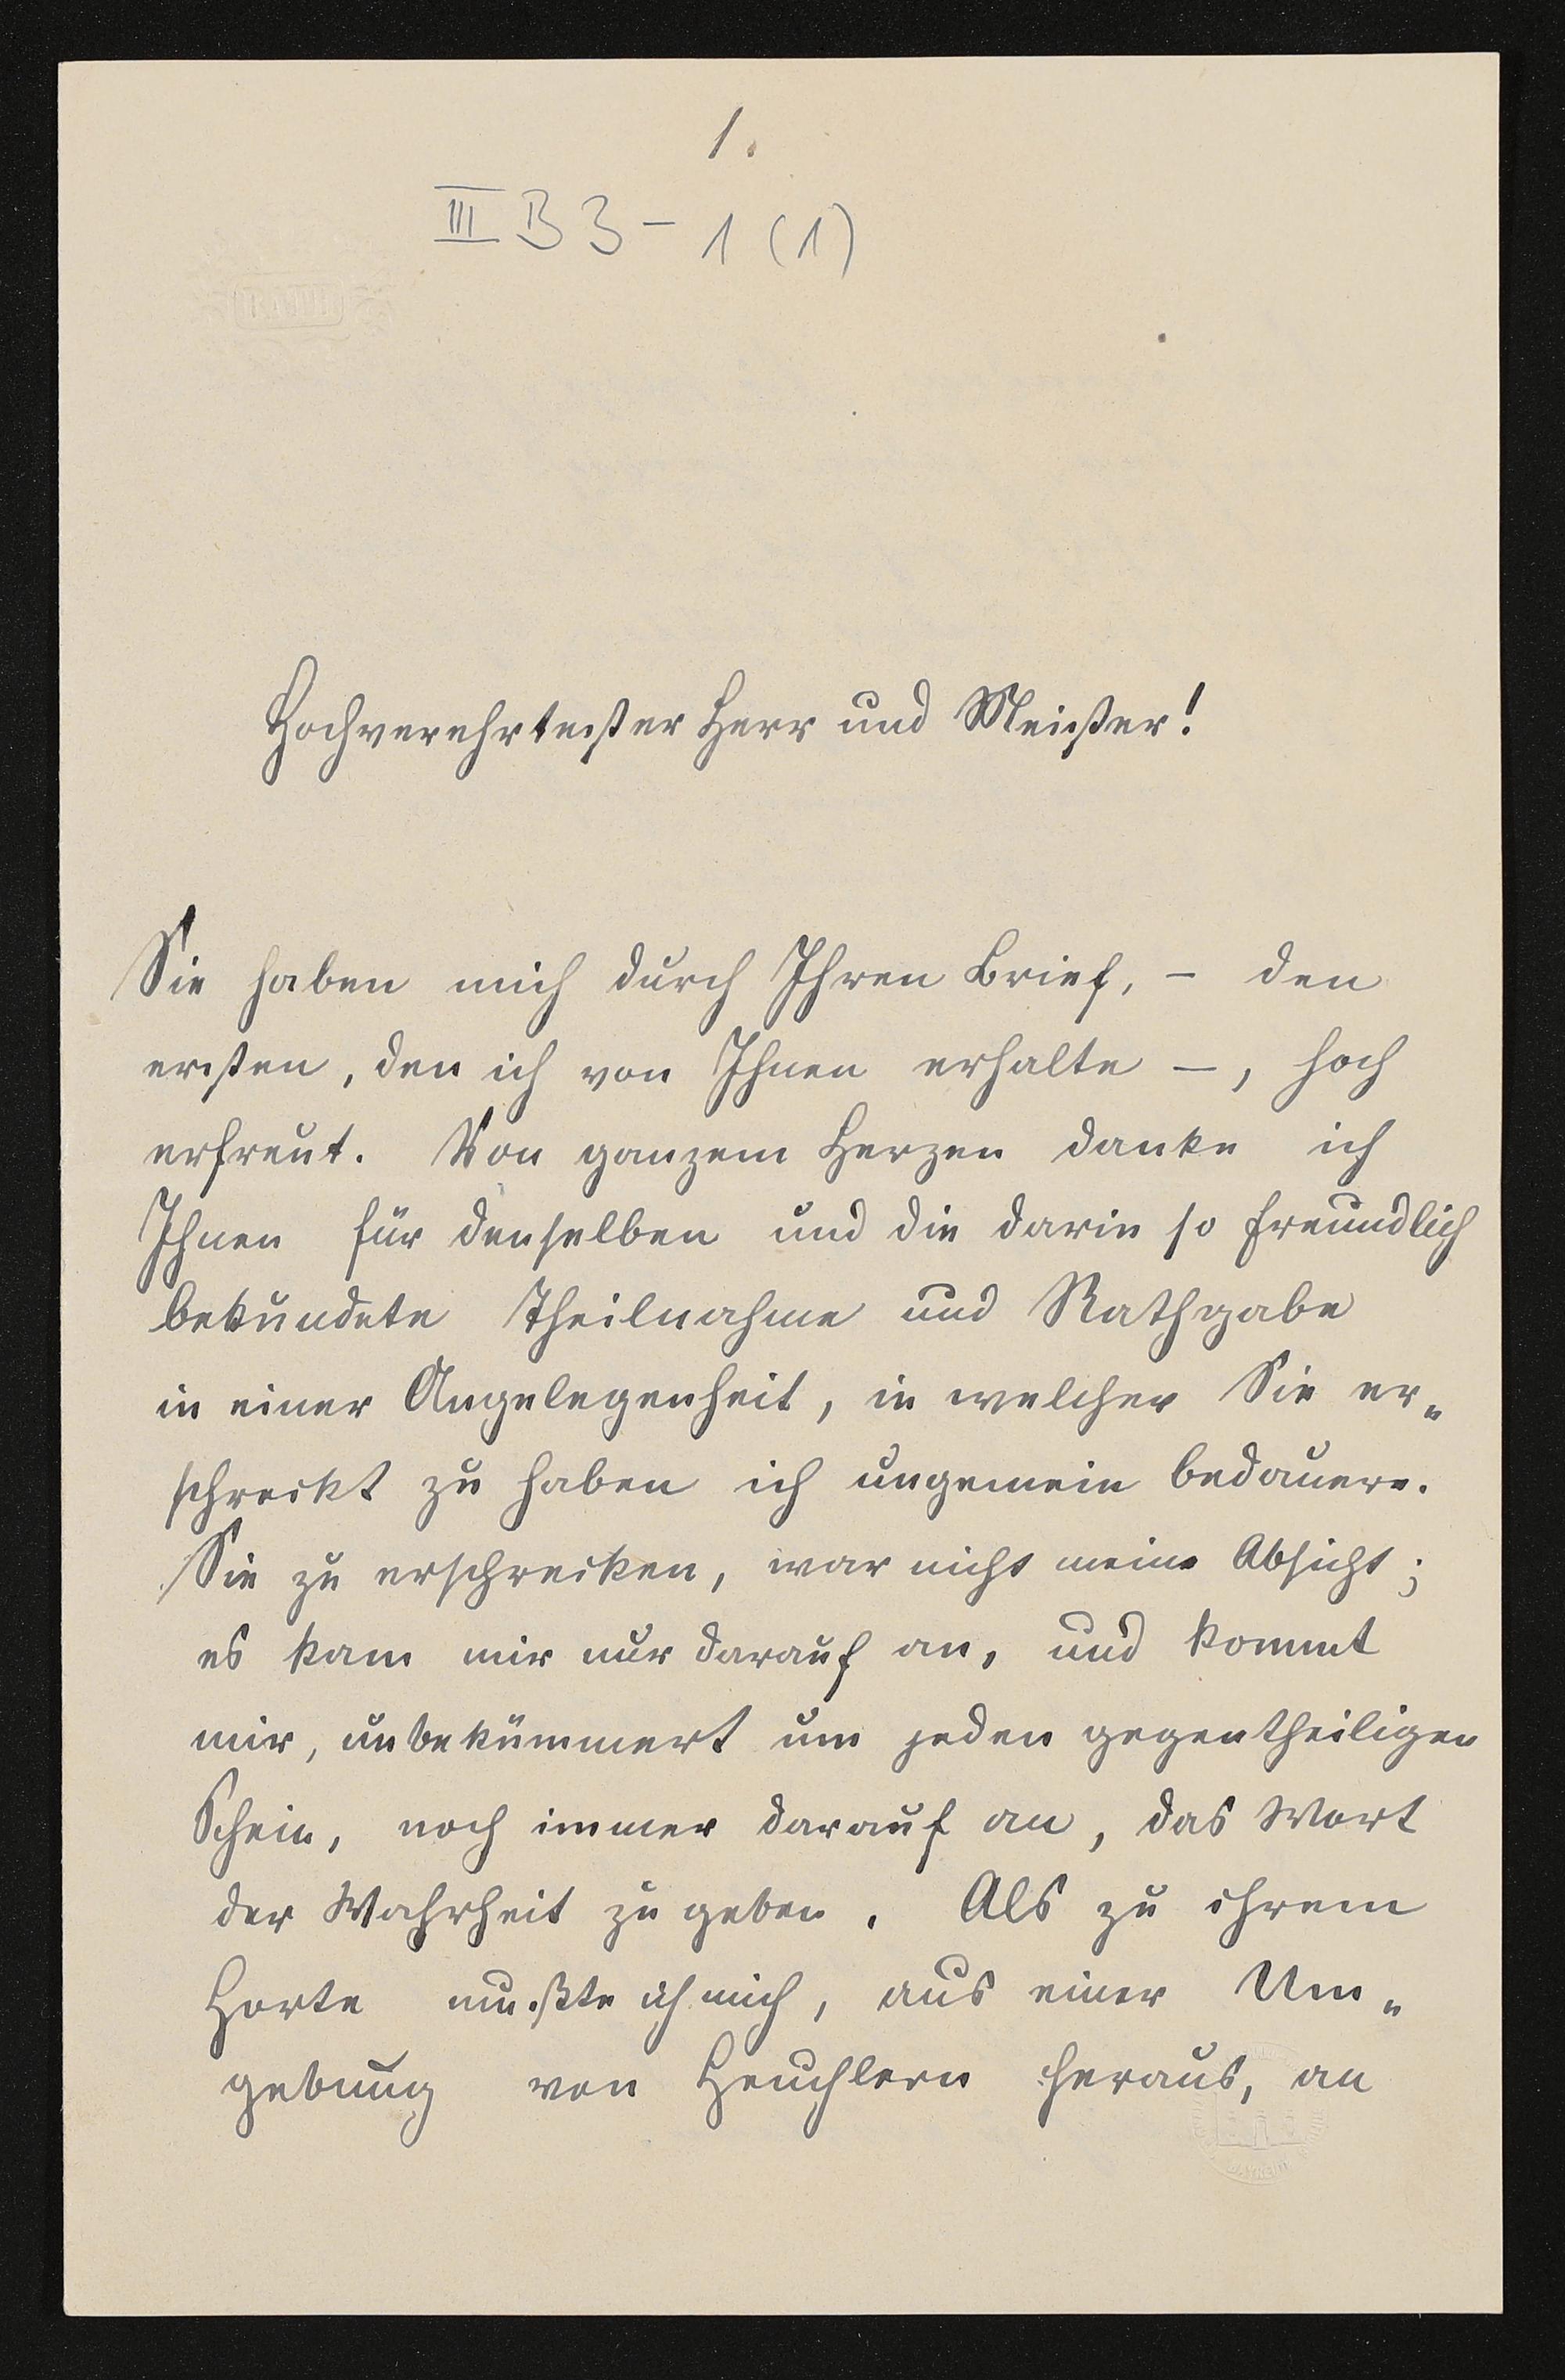 1.
III B 3 - 1 (1)
Hochverehrtester Herr und Meister!
Sie haben mich durch Ihren Brief, – den
ersten, den ich von Ihnen erhalte –, hoch
erfreut. Von ganzem Herzen danke ich
Ihnen für denselben und die darin so freundlich
bekundete Theilnahme und Rathgabe
in einer Angelegenheit, in welcher Sie er„
schreckt zu haben ich ungemein bedauere.
Sie zu erschrecken, war nicht meine Absicht;
es kam mir nur darauf an, und kommt
mir, unbekümmert um jeden gegentheiligen
Schein, noch immer darauf an, das Wort
der Wahrheit zu geben. Als zu ihrem
Horte mußte ich mich, aus einer Um„
gebung von Heuchlern heraus, an